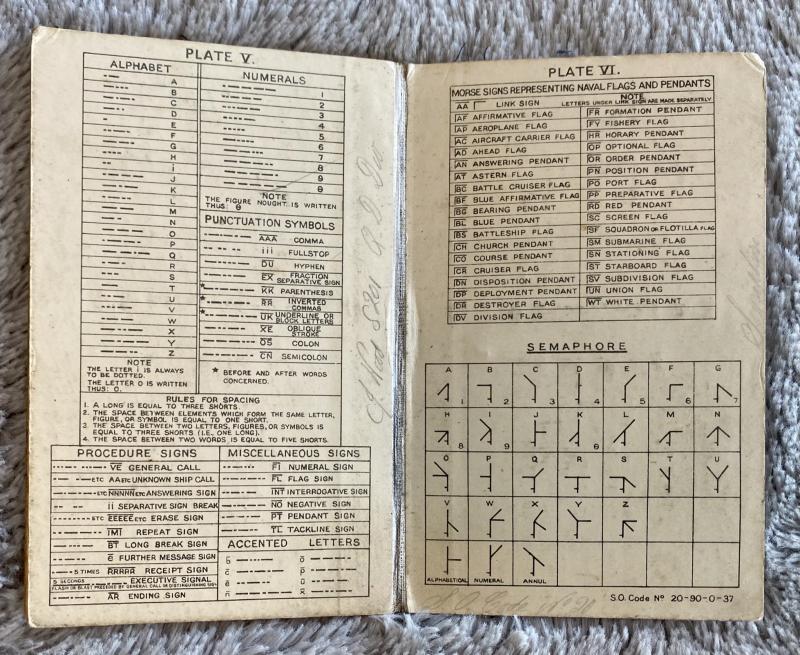 PLATE V.
ALPHABET
A
B
C
D
E
F
G
H
i
J
K
L
M
N
O
P
Q
R
S
T
U
V
W
X
Y
Z
NOTE
THE LETTER i IS ALWAYS
TO BE DOTTED.
THE LETTER O IS WRITTEN
THUS: O.
NUMERALS
1
2
3
4
5
6
7
8
9
θ
NOTE
THE FIGURE NOUGHT IS WRITTEN
THUS: θ
PUNCTUATION SYMBOLS
AAA COMMA
iii FULLSTOP
DU HYPHEN
EX FRACTION SEPARATIVE SIGN
* KK PARENTHESIS
* RR INVERTED COMMAS
* UK UNDERLINE OR BLOCK LETTERS
XE OBLIQUE STROKE
OS COLON
CN SEMICOLON
* BEFORE AND AFTER WORDS
CONCERNED.
RULES FOR SPACING
1. A LONG IS EQUAL TO THREE SHORTS.
2. THE SPACE BETWEEN ELEMENTS WHICH FORM THE SAME LETTER,
FIGURE, OR SYMBOL IS EQUAL TO ONE SHORT.
3. THE SPACE BETWEEN TWO LETTERS, FIGURES, OR SYMBOLS IS
EQUAL TO THREE SHORTS (I.E., ONE LONG).
4. THE SPACE BETWEEN TWO WORDS IS EQUAL TO FIVE SHORTS.
PROCEDURE SIGNS
VE GENERAL CALL
ETC AA ETC UNKNOWN SHIP CALL
ETC NNNNN ETC ANSWERING SIGN
ii SEPARATIVE SIGN BREAK
ETC EEEEE ETC ERASE SIGN
IMI REPEAT SIGN
BT LONG BREAK SIGN
ē FURTHER MESSAGE SIGN
5 TIMES RRRRR RECEIPT SIGN
5 SECONDS EXECUTIVE SIGNAL
FLASH OR BLAST PRECEDED BY GENERAL CALL OR DISTINGUISHING SIGN
AR ENDING SIGN
MISCELLANEOUS SIGNS
FI NUMERAL SIGN
FL FLAG SIGN
INT INTERROGATIVE SIGN
NO NEGATIVE SIGN
PT PENDANT SIGN
TL TACKLINE SIGN
ACCENTED LETTERS
PLATE VI.
MORSE SIGNS REPRESENTING NAVAL FLAGS AND PENDANTS
AA LINK SIGN
NOTE
LETTERS UNDER LINK SIGN ARE MADE SEPARATELY
AF AFFIRMATIVE FLAG
AP AEROPLANE FLAG
AC AIRCRAFT CARRIER FLAG
AD AHEAD FLAG
AN ANSWERING PENDANT
AT ASTERN FLAG
BC BATTLE CRUISER FLAG
BF BLUE AFFIRMATIVE FLAG
BG BEARING PENDANT
BL BLUE PENDANT
BS BATTLESHIP FLAG
CH CHURCH PENDANT
CO COURSE PENDANT
CR CRUISER FLAG
DN DISPOSITION PENDANT
DP DEPLOYMENT PENDANT
DR DESTROYER FLAG
DV DIVISION FLAG
FR FORMATION PENDANT
FY FISHERY FLAG
HR HORARY PENDANT
OP OPTIONAL FLAG
OR ORDER PENDANT
PN POSITION PENDANT
PO PORT FLAG
PP PREPARATIVE FLAG
RD RED PENDANT
SC SCREEN FLAG
SF SQUADRON OR FLOTILLA FLAG
SM SUBMARINE FLAG
SN STATIONING FLAG
ST STARBOARD FLAG
SV SUBDIVISION FLAG
UN UNION FLAG
WT WHITE PENDANT
SEMAPHORE
A B C D E F G
1 2 3 4 5 6 7
H I J K L M N
8 9 θ
O P Q R S T U
V W X Y Z
ALPHABETICAL NUMERAL ANNUL
S.O. Code Nº 20-90-0-37